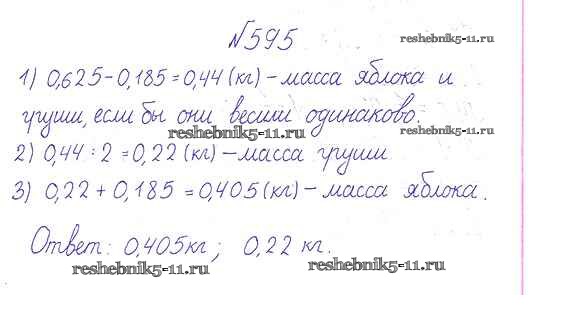 №595
reshebnik5-11.ru
1) 0,625-0,185=0,44(кг)-масса яблока и
груши, если бы они весили одинаково.
reshebnik5-11.ru
reshebnik5-11.ru
2) 0,44:2=0,22(кг)-масса груши
3) 0,22+0,185=0,405(кг)-масса яблока.
Ответ: 0,405кг; 0,22 кг.
reshebnik5-11.ru
reshebnik5-11.ru